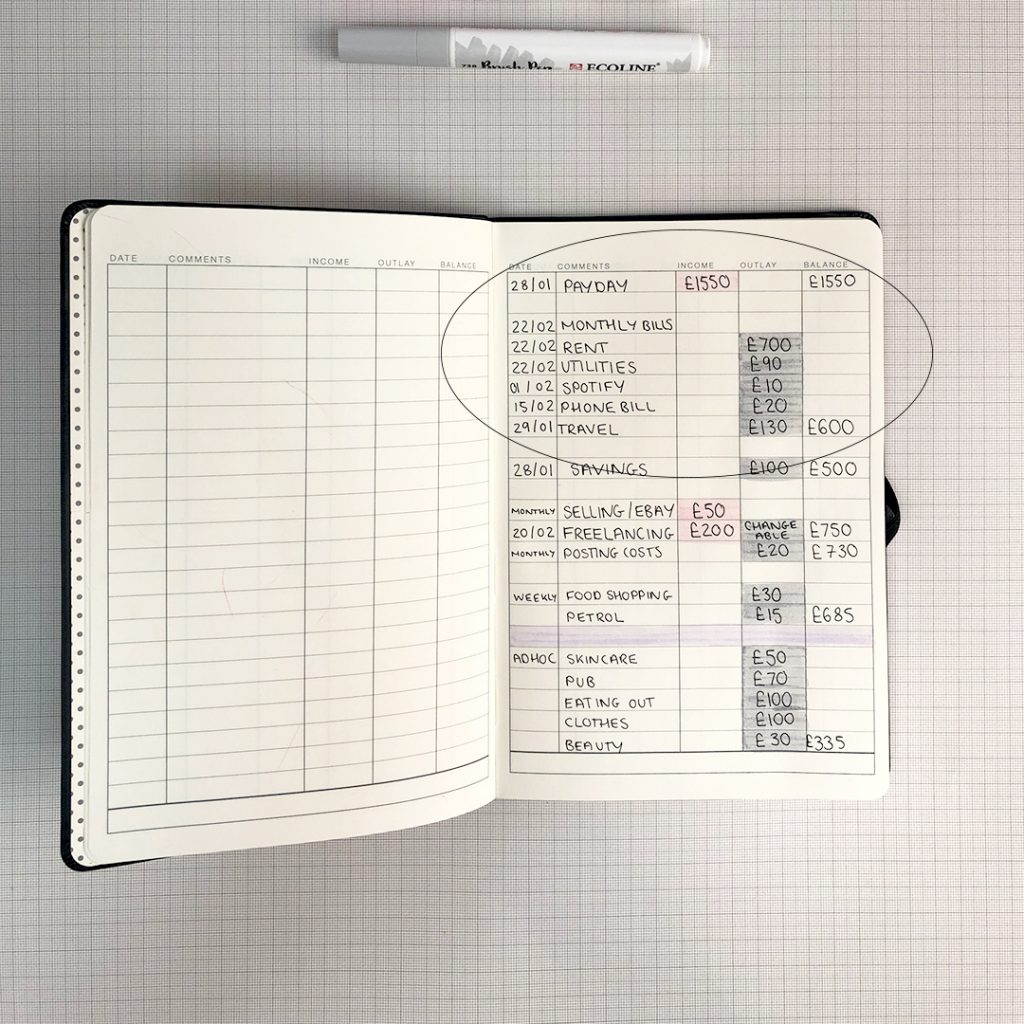 738 Brush Pen ECOLINE
DATE COMMENTS INCOME OUTLAY BALANCE
DATE COMMENTS INCOME OUTLAY BALANCE
28/01 PAYDAY £1550 £1550
22/02 MONTHLY BILLS
22/02 RENT £700
22/02 UTILITIES £90
01/02 SPOTIFY £10
15/02 PHONE BILL £20
29/01 TRAVEL £130 £600
28/01 SAVINGS £100 £500
MONTHLY SELLING/EBAY £50
20/02 FREELANCING £200 CHANGE ABLE £750
MONTHLY POSTING COSTS £20 £730
WEEKLY FOOD SHOPPING £30
PETROL £15 £685
ADHOC SKINCARE £50
PUB £70
EATING OUT £100
CLOTHES £100
BEAUTY £30 £335